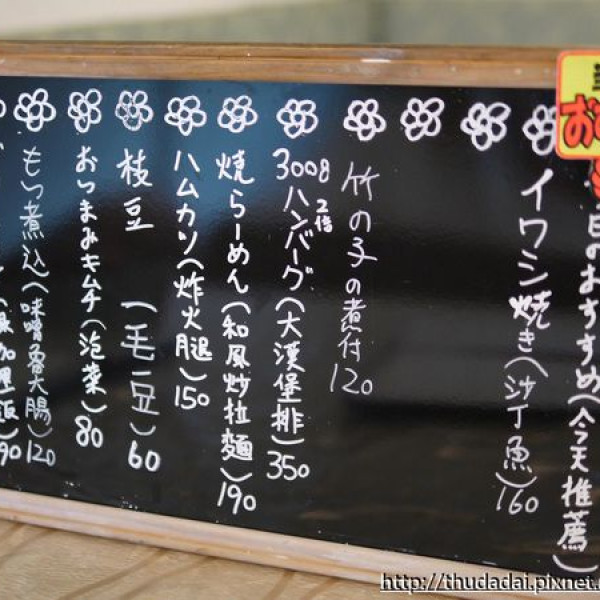 日のおすすめ(今天推薦)
イワシ焼き(沙丁魚)160
竹の子の煮付120
300g2倍ハンバーグ(大漢堡排)350
焼らーめん(和風炒拉麵)190
ハムカツ(炸火腿)150
枝豆(毛豆)60
おつまみキムチ(泡菜)80
もつ煮込(味噌魯大腸)120
飯)90
http://thudadai.pixnet.